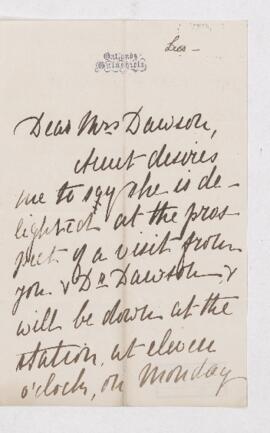 Oatlands
Galashiels
Dear Mrs Dawson,
Aunt desires
me to say she is de-
lighted at the pros-
pect of a visit from
you & Dr Dawson, &
will be down at the
station, at eleven
o'clock, on Monday